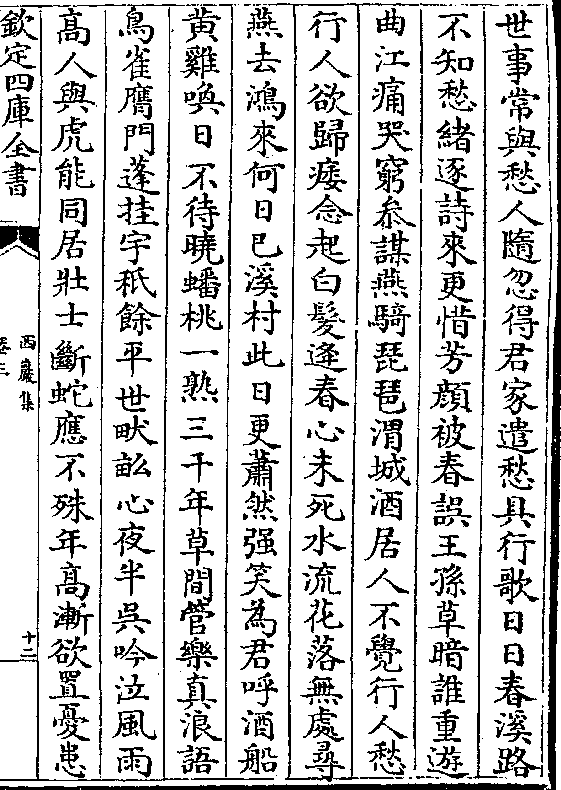 世事常與愁人隨忽得君家遣愁具行歌日日春溪路
不知愁緒逐詩來更惜芳顔被春誤王孫草暗誰重遊
曲江痛哭窮叅謀燕騎琵琶渭城酒居人不覺行人愁
行人欲歸痿念起白髮逢春心未死水流花落無處尋
燕去鴻來何日已溪村此日更蕭然强笑為君呼酒船
黃雞喚日不待曉蟠桃一熟三千年草間管樂真浪語
鳥雀膺門蓬挂宇秖餘平世畎畝心夜半吳吟泣風雨
高人與虎能同居壯士斷蛇應不殊年高漸欲置憂患
欽定四庫全書
西巖集
卷三
十二